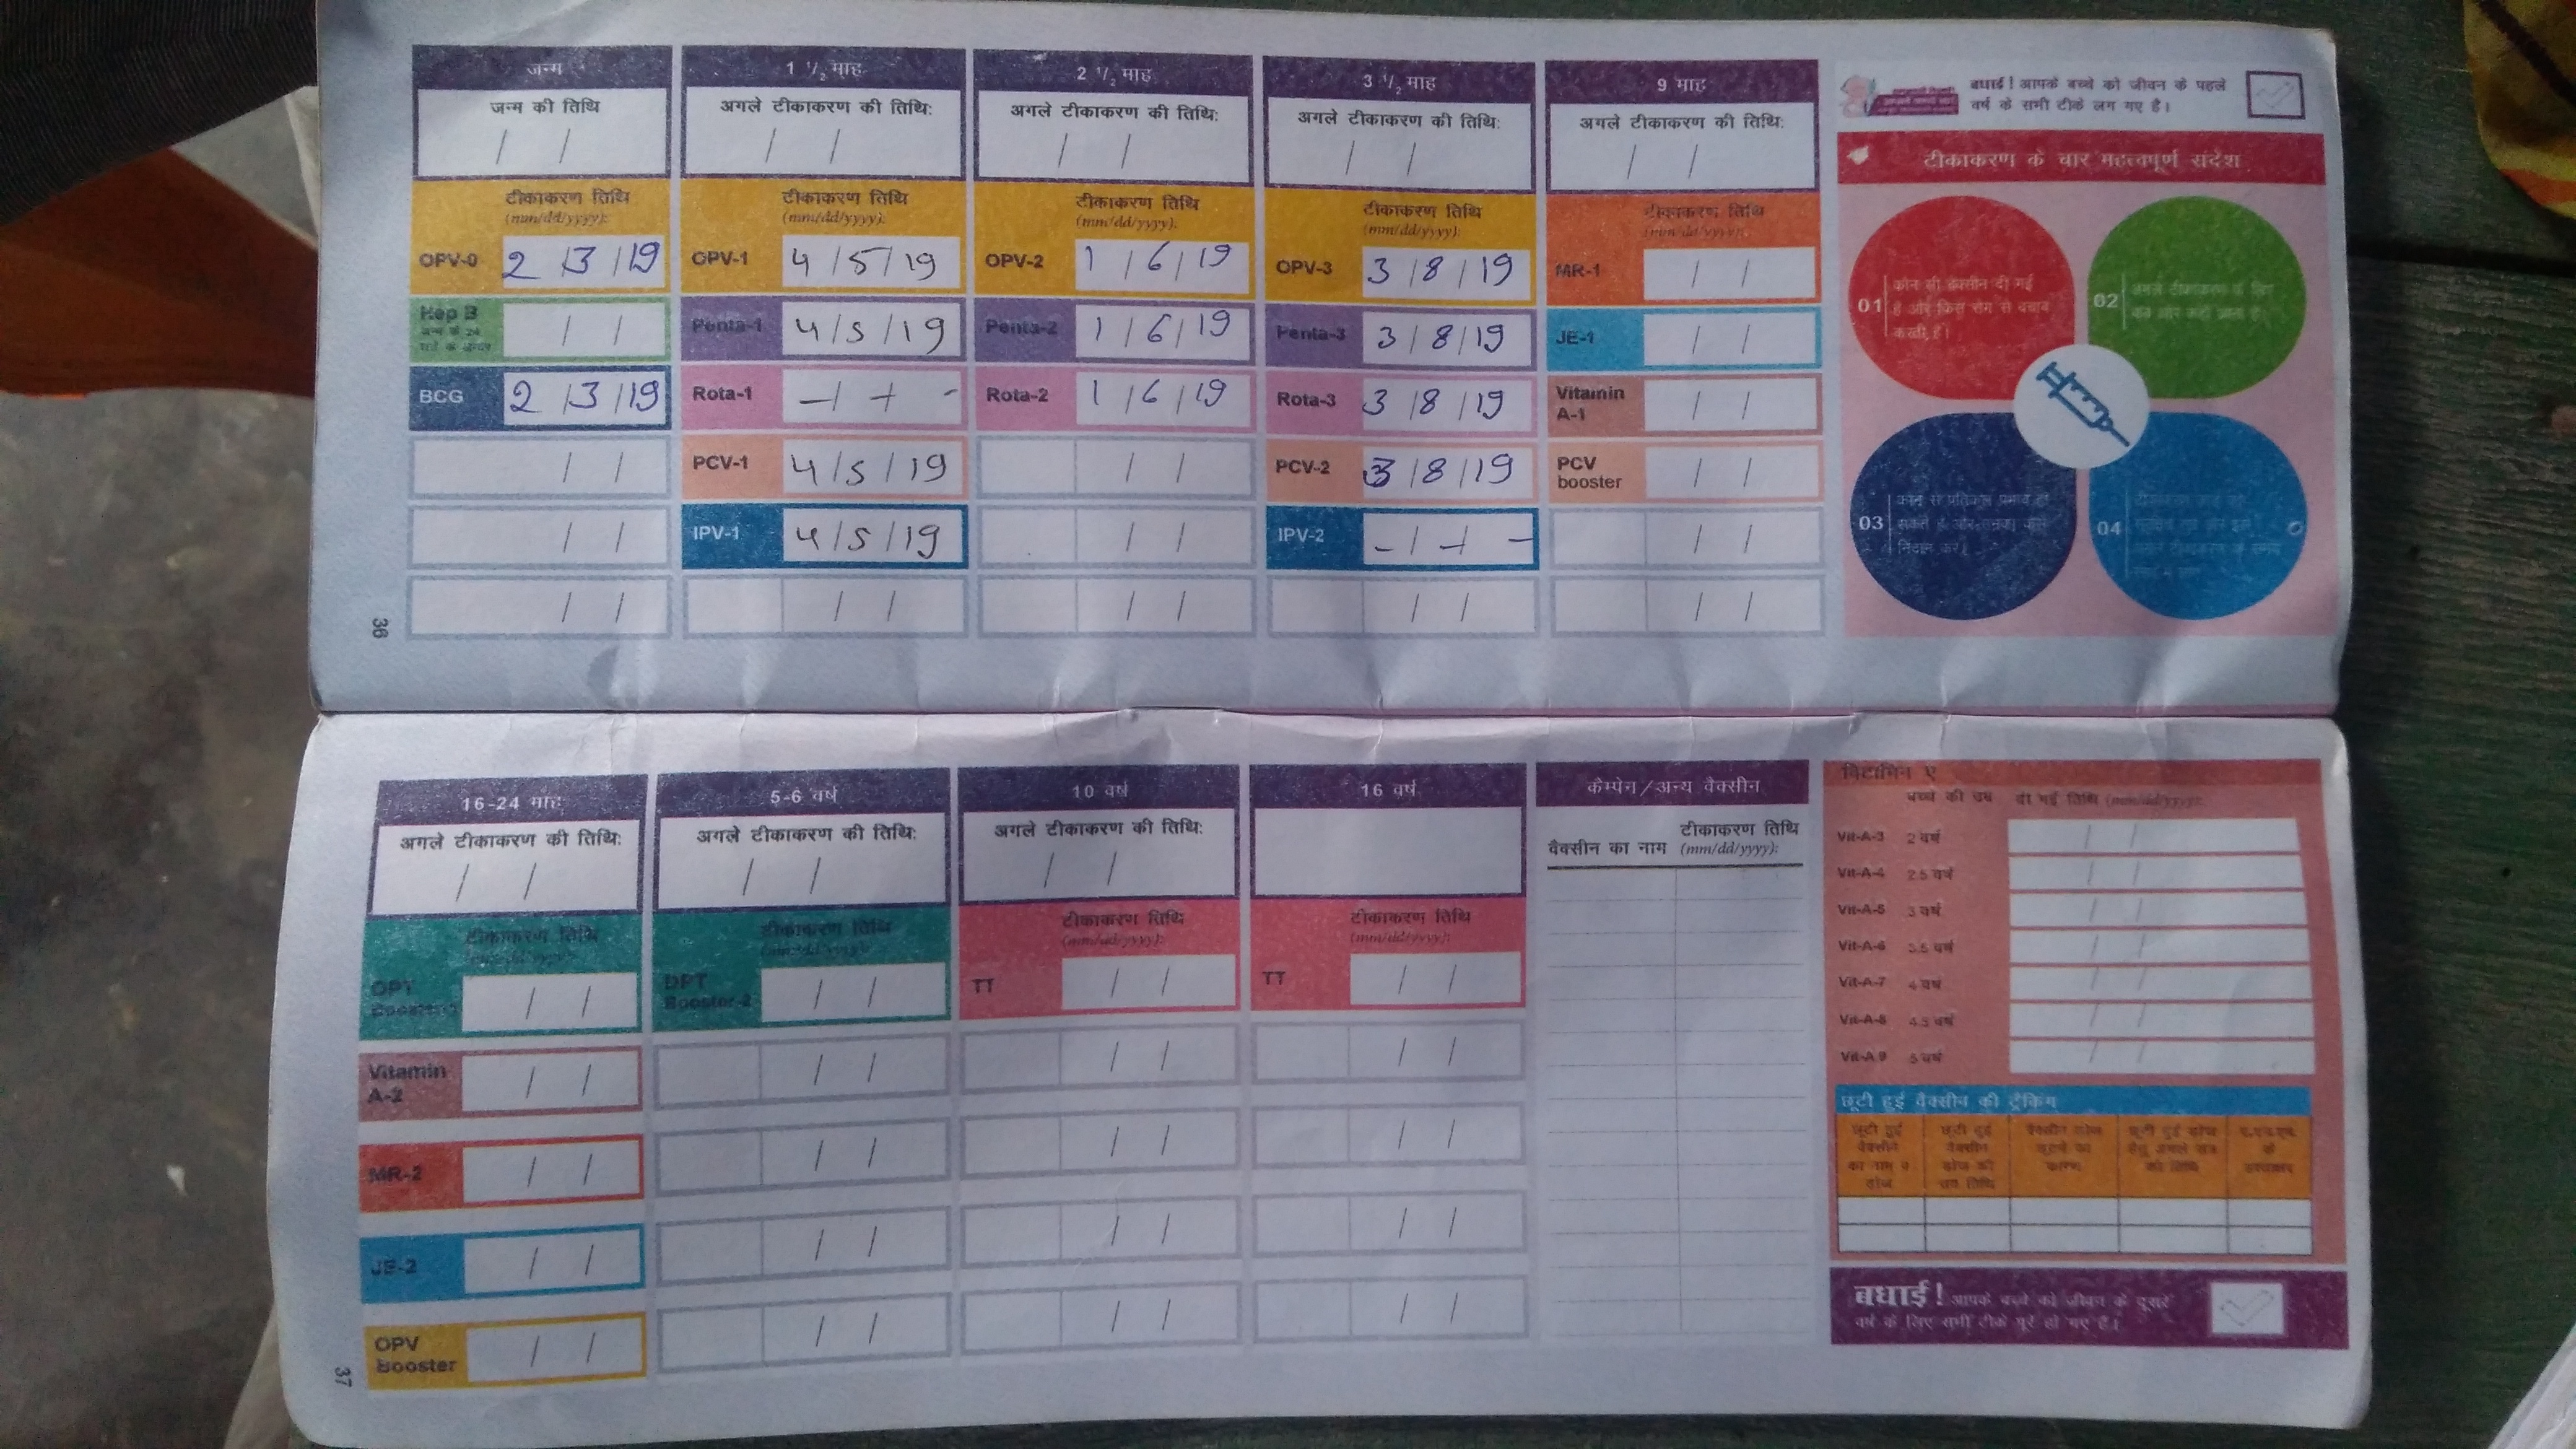 जन्म
जन्म की तिथि
/ /
टीकाकरण तिथि
(mm/dd/yyyy):
OPV-0 2/3/19
Hep B / /
जन्म के 24
घंटे के अन्दर
BCG 2/3/19
/ /
/ /
/ /
1 1/2 माह
अगले टीकाकरण की तिथि:
/ /
टीकाकरण तिथि
(mm/dd/yyyy):
OPV-1 4/5/19
Penta-1 4/5/19
Rota-1 -/-/-
PCV-1 4/5/19
IPV-1 4/5/19
/ /
2 1/2 माह
अगले टीकाकरण की तिथि:
/ /
टीकाकरण तिथि
(mm/dd/yyyy):
OPV-2 1/6/19
Penta-2 1/6/19
Rota-2 1/6/19
/ /
/ /
/ /
3 1/2 माह
अगले टीकाकरण की तिथि:
/ /
टीकाकरण तिथि
(mm/dd/yyyy):
OPV-3 3/8/19
Penta-3 3/8/19
Rota-3 3/8/19
PCV-2 3/8/19
IPV-2 -/-/-
/ /
9 माह
अगले टीकाकरण की तिथि:
/ /
टीकाकरण तिथि
(mm/dd/yyyy):
MR-1 / /
JE-1 / /
Vitamin
A-1 / /
PCV
booster / /
/ /
/ /
बधाई! आपके बच्चे को जीवन के पहले
वर्ष के सभी टीके लग गए है।
टीकाकरण के चार महत्वपूर्ण संदेश
01
कौन सी वैक्सीन दी गई
है और किस रोग से बचाव
करती है।
02
अगले टीकाकरण के लिए
कब और कहाँ आना है।
03
कौन से प्रतिकूल प्रभाव हो
सकते है और उनका कैसे
निदान करें।
04
36
16-24 माह
अगले टीकाकरण की तिथि:
/ /
टीकाकरण तिथि
(mm/dd/yyyy):
Booster-1 / /
Vitamin
A-2 / /
MR-2 / /
JE-2 / /
OPV
Booster / /
5-6 वर्ष
अगले टीकाकरण की तिथि:
/ /
टीकाकरण तिथि
(mm/dd/yyyy):
DPT
Booster-2 / /
/ /
/ /
/ /
/ /
10 वर्ष
अगले टीकाकरण की तिथि:
/ /
टीकाकरण तिथि
(mm/dd/yyyy):
TT / /
/ /
/ /
/ /
/ /
16 वर्ष
टीकाकरण तिथि
(mm/dd/yyyy):
TT / /
/ /
/ /
/ /
/ /
कैम्पेन/अन्य वैक्सीन
वैक्सीन का नाम
टीकाकरण तिथि
(mm/dd/yyyy):
विटामिन ए
बच्चे की उम्र दी गई तिथि (mm/dd/yyyy):
Vit-A-3 2 वर्ष / /
Vit-A-4 2.5 वर्ष / /
Vit-A-5 3 वर्ष / /
Vit-A-6 3.5 वर्ष / /
Vit-A-7 4 वर्ष / /
Vit-A-8 4.5 वर्ष / /
Vit-A 9 5 वर्ष / /
छूटी हुई वैक्सीन की ट्रैकिंग
छूटी हुई
वैक्सीन
का नाम व
डोज
छूटी हुई
वैक्सीन
डोज की
तिथि
वैक्सीन डोज
छूटने का
कारण
छूटी हुई डोज
हेतु अगले सत्र
की तिथि
ए.एन.एम.
के
हस्ताक्षर
बधाई! आपके बच्चे को जीवन के दूसरे
वर्ष के लिए सभी टीके पूरे हो गए है।
37